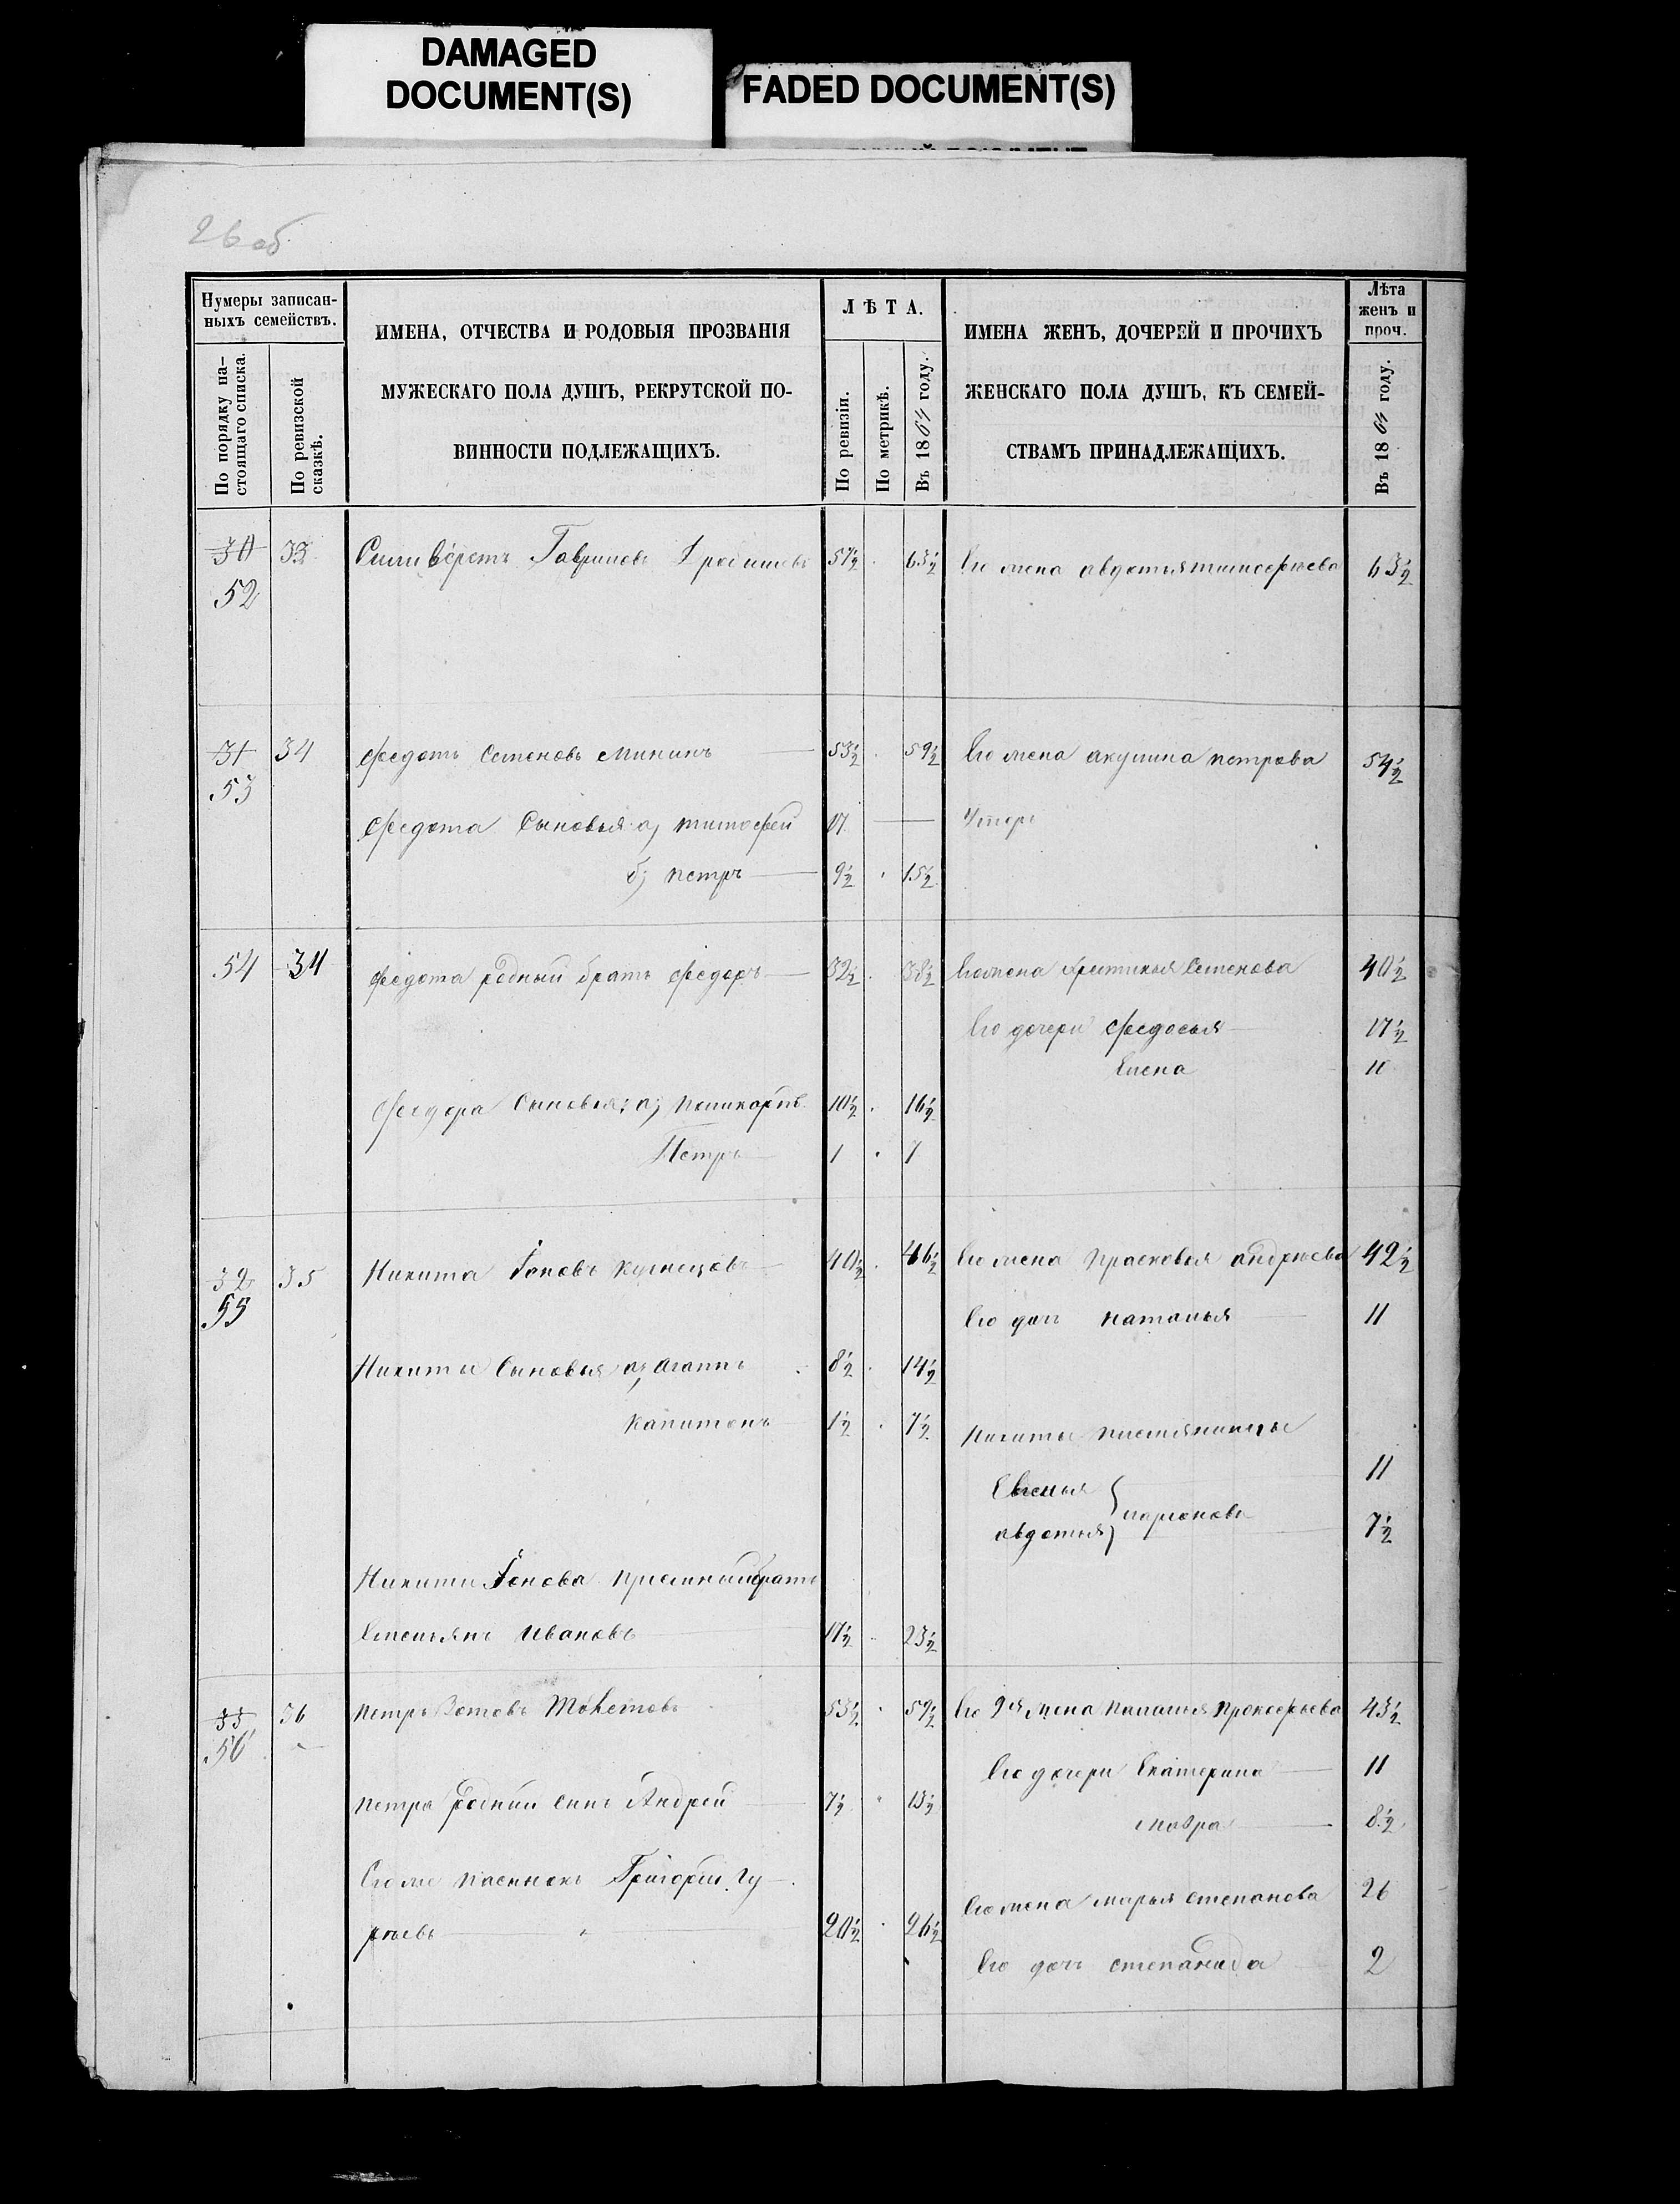 DAMAGED
DOCUMENT(S)
FADED DOCUMENT(S)
26 об
Нумеры записан-
ныхъ семействъ.
По порядку на-
стоящаго списка.
По ревизской
сказкѣ.
ИМЕНА, ОТЧЕСТВА И РОДОВЫЯ ПРОЗВАНІЯ
МУЖЕСКАГО ПОЛА ДУШЪ, РЕКРУТСКОЙ ПО-
ВИННОСТИ ПОДЛЕЖАЩИХЪ.
ЛѢТА.
По ревизіи.
По метрикѣ.
Въ 1864 году.
ИМЕНА ЖЕНЪ, ДОЧЕРЕЙ И ПРОЧИХЪ
ЖЕНСКАГО ПОЛА ДУШЪ, КЪ СЕМЕЙ-
СТВАМЪ ПРИНАДЛЕЖАЩИХЪ.
Лѣта
женъ и
проч.
Въ 1864 году.
30 33 Силиверстъ Гавриловъ 57½ 63½ Его жена авдотья тимофеева 63½
52
31 34 Федотъ Семеновъ Мининъ 53½ 59½ Его жена акулина петрова 54½
53
Федота Сыновья: а, тимофей 17 — Умеръ
б; петръ 9½ 15½
54 34 Федота родный братъ федоръ 32½ 38½ Его жена Семенова 40½
Его дочери Федосья 17½
Елена 10
Федора Сыновья: а; поликарпъ 10½ 16½
Петръ 1 7
32 35 Никита Іоновъ Кузнецовъ 40½ 46½ Его жена Прасковья андреева 42½
55
Его дочь наталья 11
Никиты Сыновья а, агапъ 8½ 14½
Капитонъ 1½ 7½
Никиты племянницы
Евгенья 11
авдотья 7½
Никиты Іонова приемный братъ
Емельянъ Ивановъ 17½ 23½
33 36 Петръ Зотовъ 53½ 59½ Его 2я жена Пелагея Прокофьева 43½
56
Его дочери Екатерина 11
Петра родный сынъ Андрей 7½ 13½
мавра 8½
Его же пасынокъ Григорий Гу-
рьевъ 20½ 26½
Его жена марья степанова 26
Его дочь степанида 2